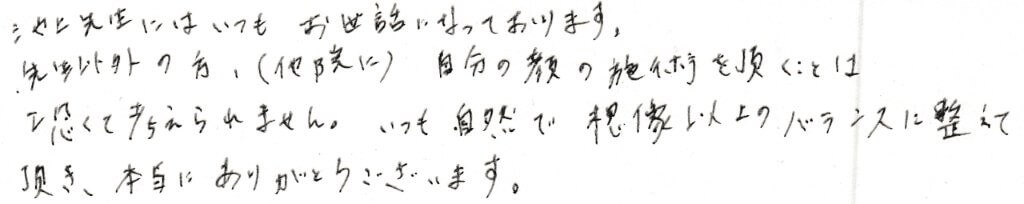 池上先生にはいつも お世話になっております。
先生以外の方、(他院に) 自分の顔の施術を頂くことは
恐くて考えられません。 いつも自然で 想像以上のバランスに整えて
頂き、本当にありがとうございます。